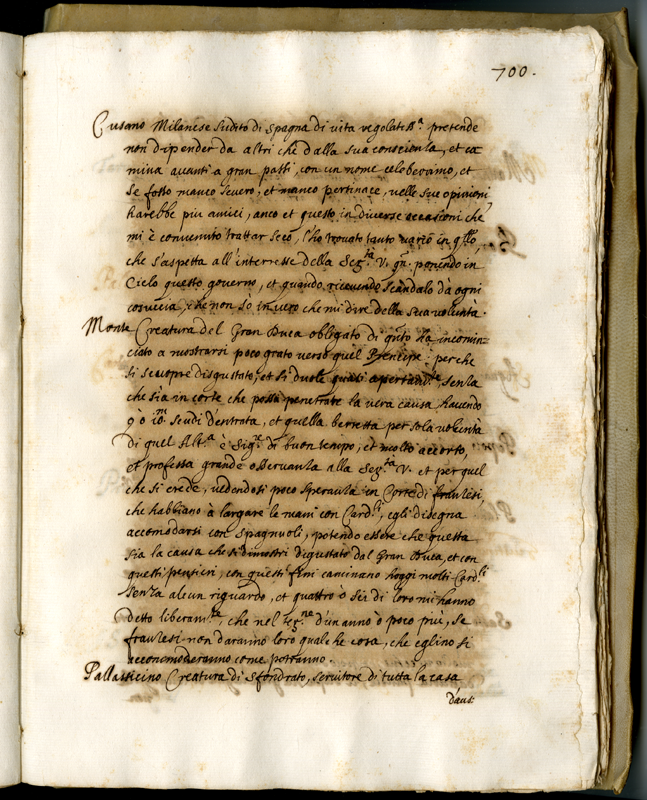 700.
Cusano Milanese sudito di Spagna di vita regolatiss.ᵃ pretende
non dipender da altri che dalla sua conscienza, et ca=
mina avanti a gran passi, con un nome celeberrimo, et
se fosse manco severo, et manco pertinace, nelle sue opinioni
harebbe piu amici, anco et questo in diverse occasioni che
mi è convenuto trattar seco, l'ho trovato tanto vario in q̃llo,
che s'aspetta all'interesse della Ser.ᵗᵃ V. ponendo in
Cielo questo governo, et quando ricevendo scandalo da ogni
che non so in vero che mi dire della sua volontà.
Monte Creatura del Gran Duca obligato di q̃nto ha, incomin=
ciato a mostrarsi poco grato verso quel Prencipe: perche
si scuopre disgustato, et si duole quasi apertam.ᵗᵉ senza
che sia in corte che possa penetrare la vera causa havendo
9 ò 10.ᵐ scudi d'entrata, et quella berretta per sola volontà
di quel Alt.ᵃ è Sig.ʳᵉ di buon tempo, et molto accorto,
et professa grande osservanza alla Ser.ᵗᵃ V. et per quel
che si crede, vedendosi poco speranza in Corte di franzesi,
che habbiano à largare le mani con Card.ˡⁱ, egli disegna
accomodarsi con spagnuoli, potendo essere che questa
sia la causa che si dimostri disgustato dal Gran Duca, et con
questi pensieri, con questi fini caminano hoggi molti Card.ˡⁱ
senza alcun riguardo, et quattro ò sei di loro mi hanno
detto liberam.ᵗᵉ, che nel ter.ⁿᵉ d'un anno ò poco più, se
franzesi non daranno loro qualche cosa, che eglino si
accommoderanno come potranno.
Pallavicino Creatura di Sfondrato, servitore di tutta la casa